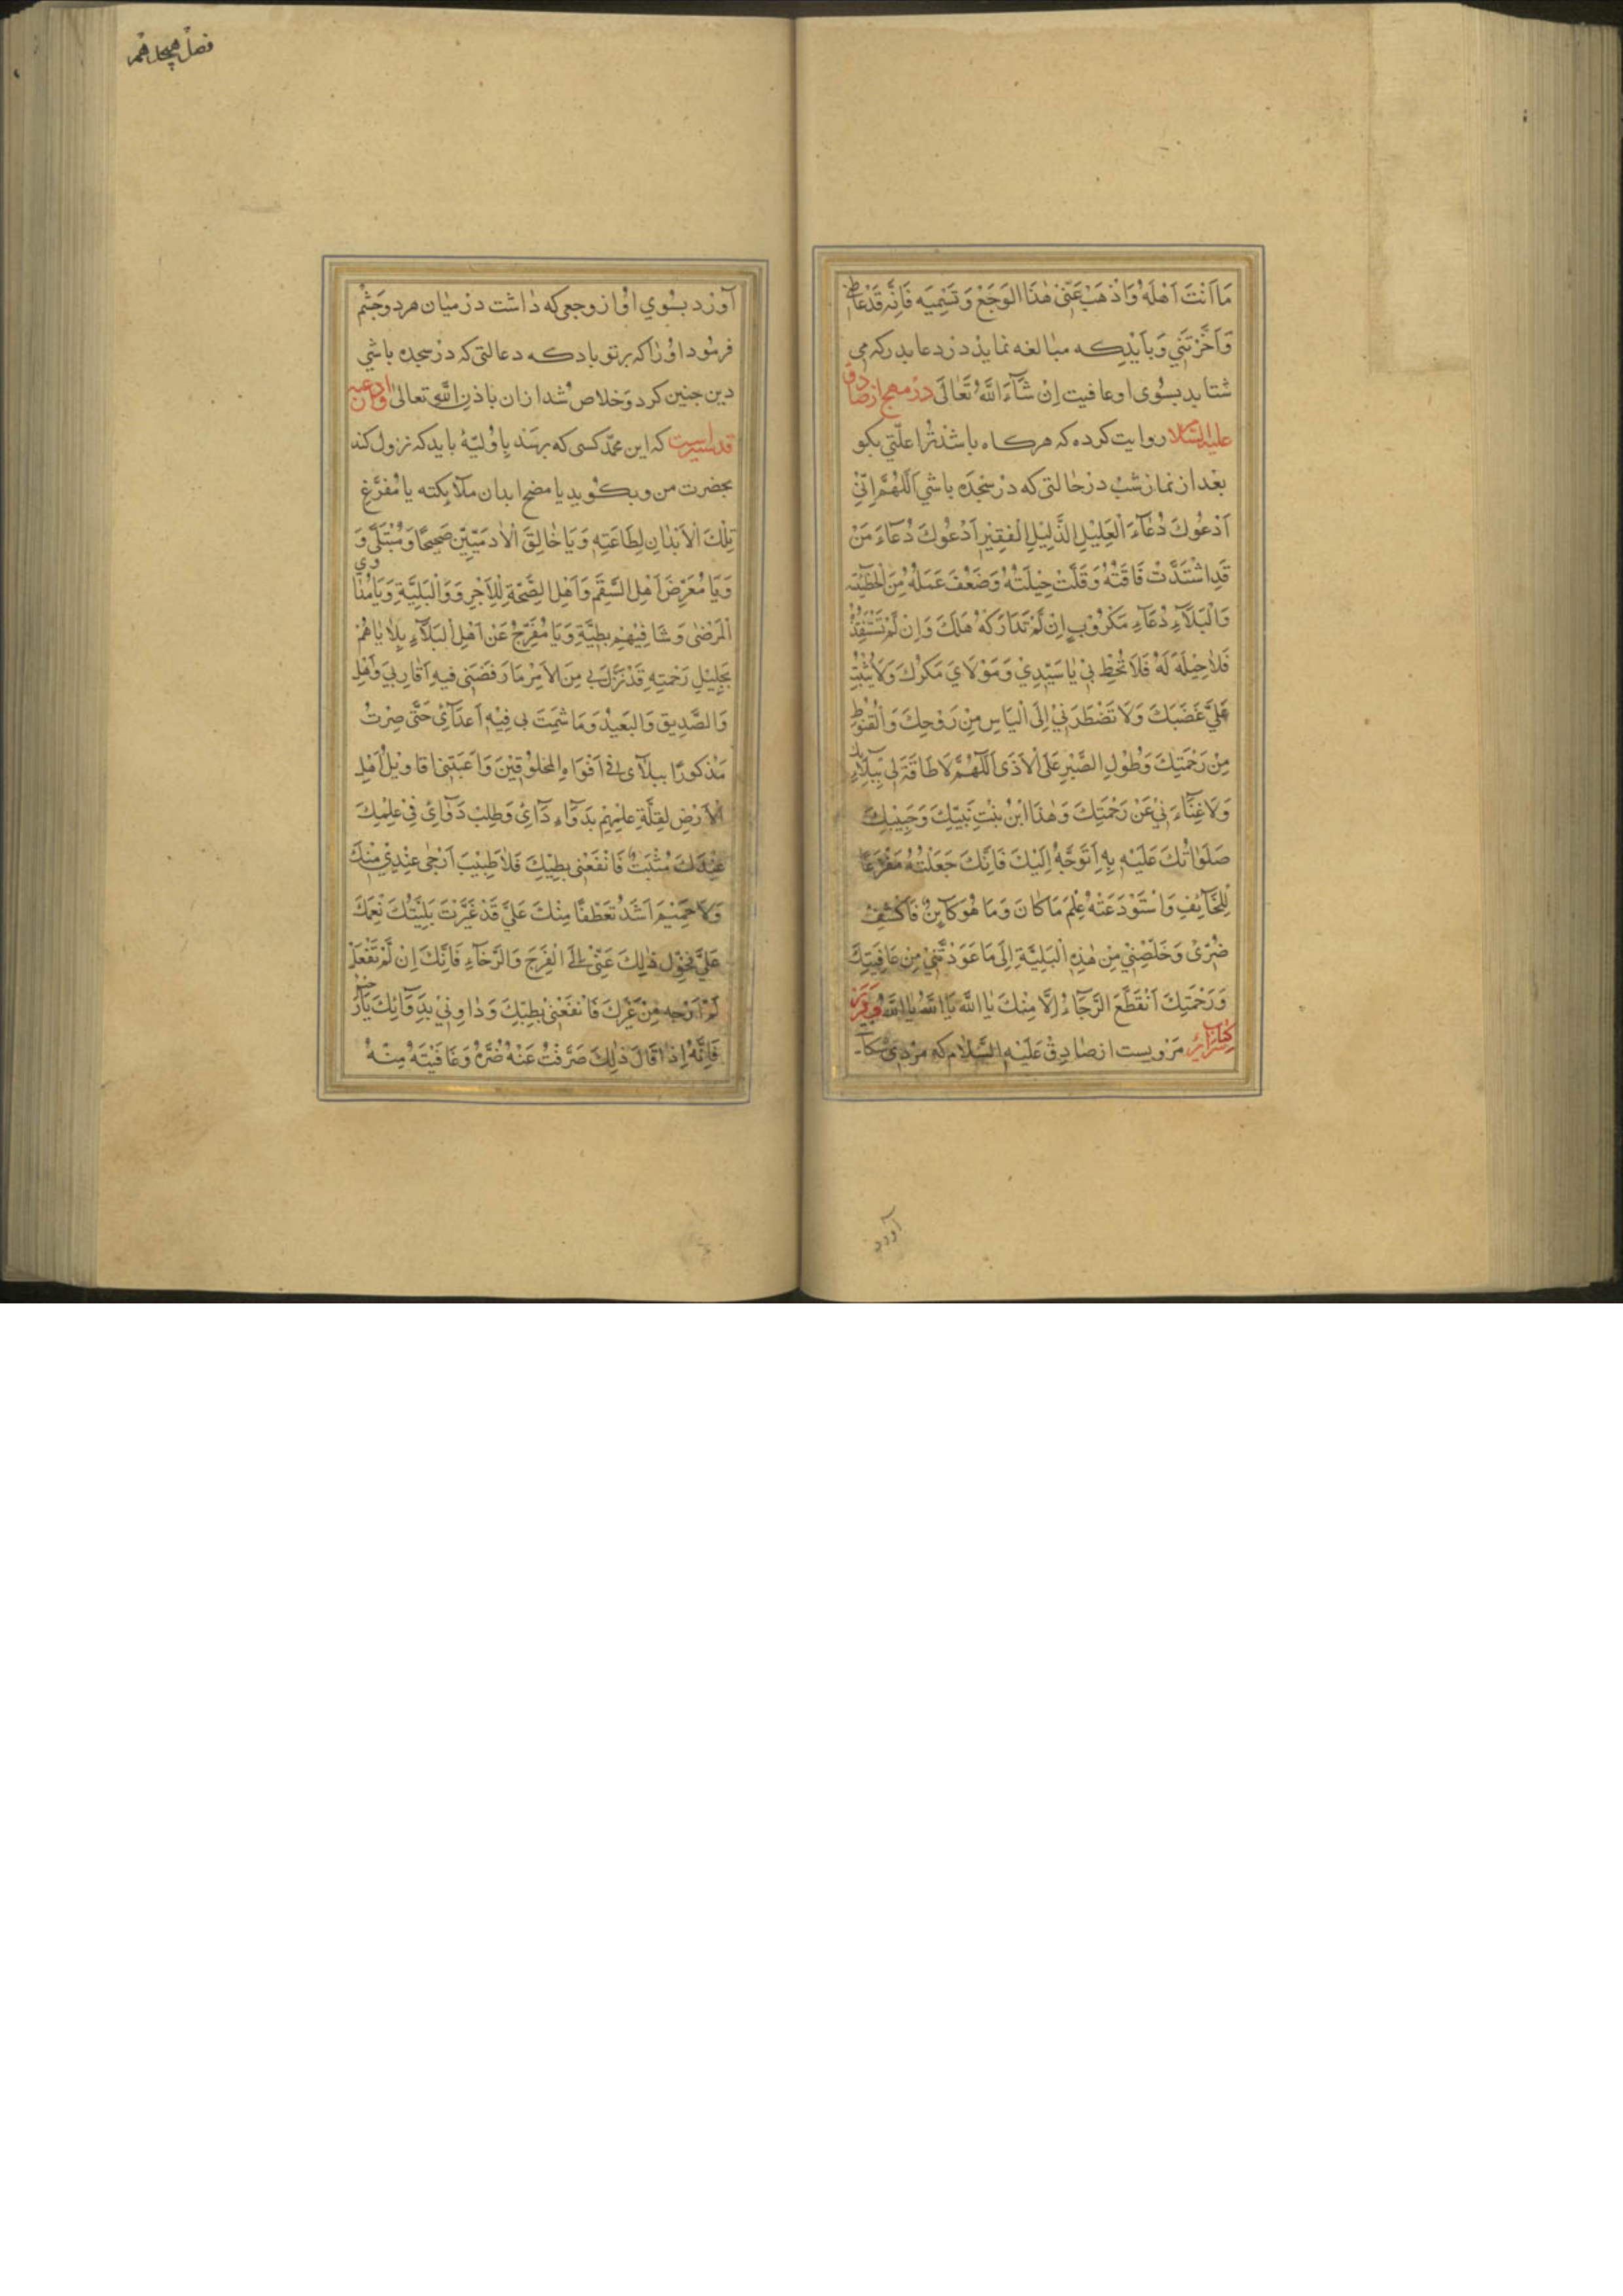 مَا اَنْتَ اَهْلَهُ وَاَذْهِبْ عَنّي هٰذَا الوَجَعَ وَتَسْمِيَه فَاِنَّه قَدْ غَاظَني
وَاَحْزَنَنِي وَبايد كه مبالغه نمايد در دعا بدركه مى
شتابد بسوى او عافيت اِنْ شَآءَ اللَّهُ تَعَالَى در مهج از صادق
عليه السّلام روايت كرده كه هركاه باشد ترا علّتى بكو
بعد از نماز شب در حالتى كه در سجده باشي اَللّٰهُمَّ اِنّي
اَدْعُوكَ دُعَآءَ الْعَلِيْلِ الذَّلِيْلِ الْفَقِيْرِ اَدْعُوكَ دُعَآءَ مَنْ
قَدِ اشْتَدَّتْ فَاقَتُهُ وَقَلَّتْ حِيْلَتُهُ وَضَعُفَ عَمَلُهُ مِنَ الْخَطِيْئَة
وَالْبَلَآءِ دُعَآءَ مَكْرُوْبٍ اِنْ لَمْ تَدَارَكْهُ هَلَكَ وَاِنْ لَمْ تَسْتَنْقِذْهُ
فَلَا حِيْلَةَ لَهُ فَلَا تُحِطْ بِي يَا سَيِّدِيْ وَمَوْلَايَ مَكْرَكَ وَلَا تُثْبِتْ
عَلَيَّ غَضَبَكَ وَلَا تَضْطَرَّنِيْ اِلَى الْيَاسِ مِنْ رَوْحِكَ وَالْقُنُوْطِ
مِنْ رَحْمَتِكَ وَطُوْلِ الصَّبْرِ عَلَى الْاَذَى اَللّٰهُمَّ لَا طَاقَةَ لِي بِبَلَائِكَ
وَلَا غِنَآءَ بِيْ عَنْ رَحْمَتِكَ وَهٰذَا ابْنُ بِنْتِ نَبِيِّكَ وَحَبِيْبِكَ
صَلَوَاتُكَ عَلَيْهِ بِهِ اَتَوَجَّهُ اِلَيْكَ فَاِنَّكَ جَعَلْتَهُ مَفْزَعًا
لِلْخَآئِفِ وَاسْتَوْدَعْتَهُ عِلْمَ مَا كَانَ وَمَا هُوَ كَآئِنٌ فَاكْشِفْ
ضُرّى وَخَلِّصْنِيْ مِنْ هٰذِهِ الْبَلِيَّةِ اِلَى مَا عَوَّدْتَنِيْ مِنْ عَافِيَتِكَ
وَرَحْمَتِكَ اَنْقَطَعَ الرَّجَآءُ اِلَّا مِنْكَ يَا اللَّهُ يَا اللَّهُ يَا اللَّهُ
مرويست از صادق عَلَيْهِ السَّلَام كه مردى شكايت
آورد
فصل هيجدهم
آورد بسوي او از وجعى كه داشت در ميان مرد وچشم
فرمود او را كه بر تو باد كه دعا لتى كه در سجده باشي
دين جنين كرد وخلاص شد از ان باذن اللّه تعالى و ادعيه
قدسيه است كه اين محمّد كسى كه برسد باو بليّهٔ بايد كه نزول كند
بحضرت من وبكويد يا مصح ابدان ملائكته يا مُفَرِّغَ
تِلْكَ الْاَبْدَانِ لِطَاعَتِهِ وَيَا خَالِقَ الْآدَمِيِّيْنَ صَحِيْحًا وَمُبْتَلًى وَ
وَيَا مُعَرِّضَ اَهْلِ السَّقَمِ وَاَهْلِ الصِّحَّةِ لِلْاَجْرِ وَالْبَلِيَّةِ وَيَا مُدَاوِيَ
الْمَرْضٰى وَشَافِيْهِمْ بِطِبِّهِ وَيَا مُفَرِّجُ عَنْ اَهْلِ الْبَلَآءِ بَلَايَاهُمْ
بِجَلِيْلِ رَحْمَتِهِ قَدْ نَزَلَ بِي مِنَ الْاَمْرِ مَا رَفَضَنِى فِيهِ اَقَارِبِيَ وَاَهْلِي
وَالصَّدِيْقِ وَالْبَعِيْدُ وَمَا شَمِتَ بِى فِيْهِ اَعْدَآئِيْ حَتَّى صِرْتُ
مَذْكُورًا بِبَلَآى فِي اَفْوَاهِ الْمَخْلُوْقِيْنَ وَاَعْيَتْنِى اَقَاوِيْلُ اَهْلِ
الْاَرْضِ لِقِلَّةِ عِلْمِهِمْ بِدَوَآءِ دَآئِيْ وَطِبُّ دَوَآئِيْ فِيْ عِلْمِكَ
عِنْدَكَ مُثْبَتٌ فَانْفَعْنِى بِطِبِّكَ فَلَا طَبِيْبَ اَرْجٰى عِنْدِيْ مِنْكَ
وَلَا حَمِيْمَ اَشَدُّ تَعَطُّفًا مِنْكَ عَلَيَّ قَدْ غَيَّرَتْ بَلِيَّتُكَ نِعَمَكَ
عَلَيَّ فَحَوِّلْ ذٰلِكَ عَنِّيْ اِلَى الْفَرَجِ وَالرَّخَآءِ فَاِنَّكَ اِنْ لَمْ تَفْعَلْ
لَمْ اَرْجِهِ مِنْ غَيْرِكَ فَانْفَعْنِيْ بِطِبِّكَ وَدَاوِنِيْ بِدَوَآئِكَ يَا رَحِيْمُ
فَاِنَّهُ اِذَا قَالَ ذٰلِكَ صَرَفْتُ عَنْهُ ضُرَّهُ وَعَافَيْتُهُ مِنْهُ